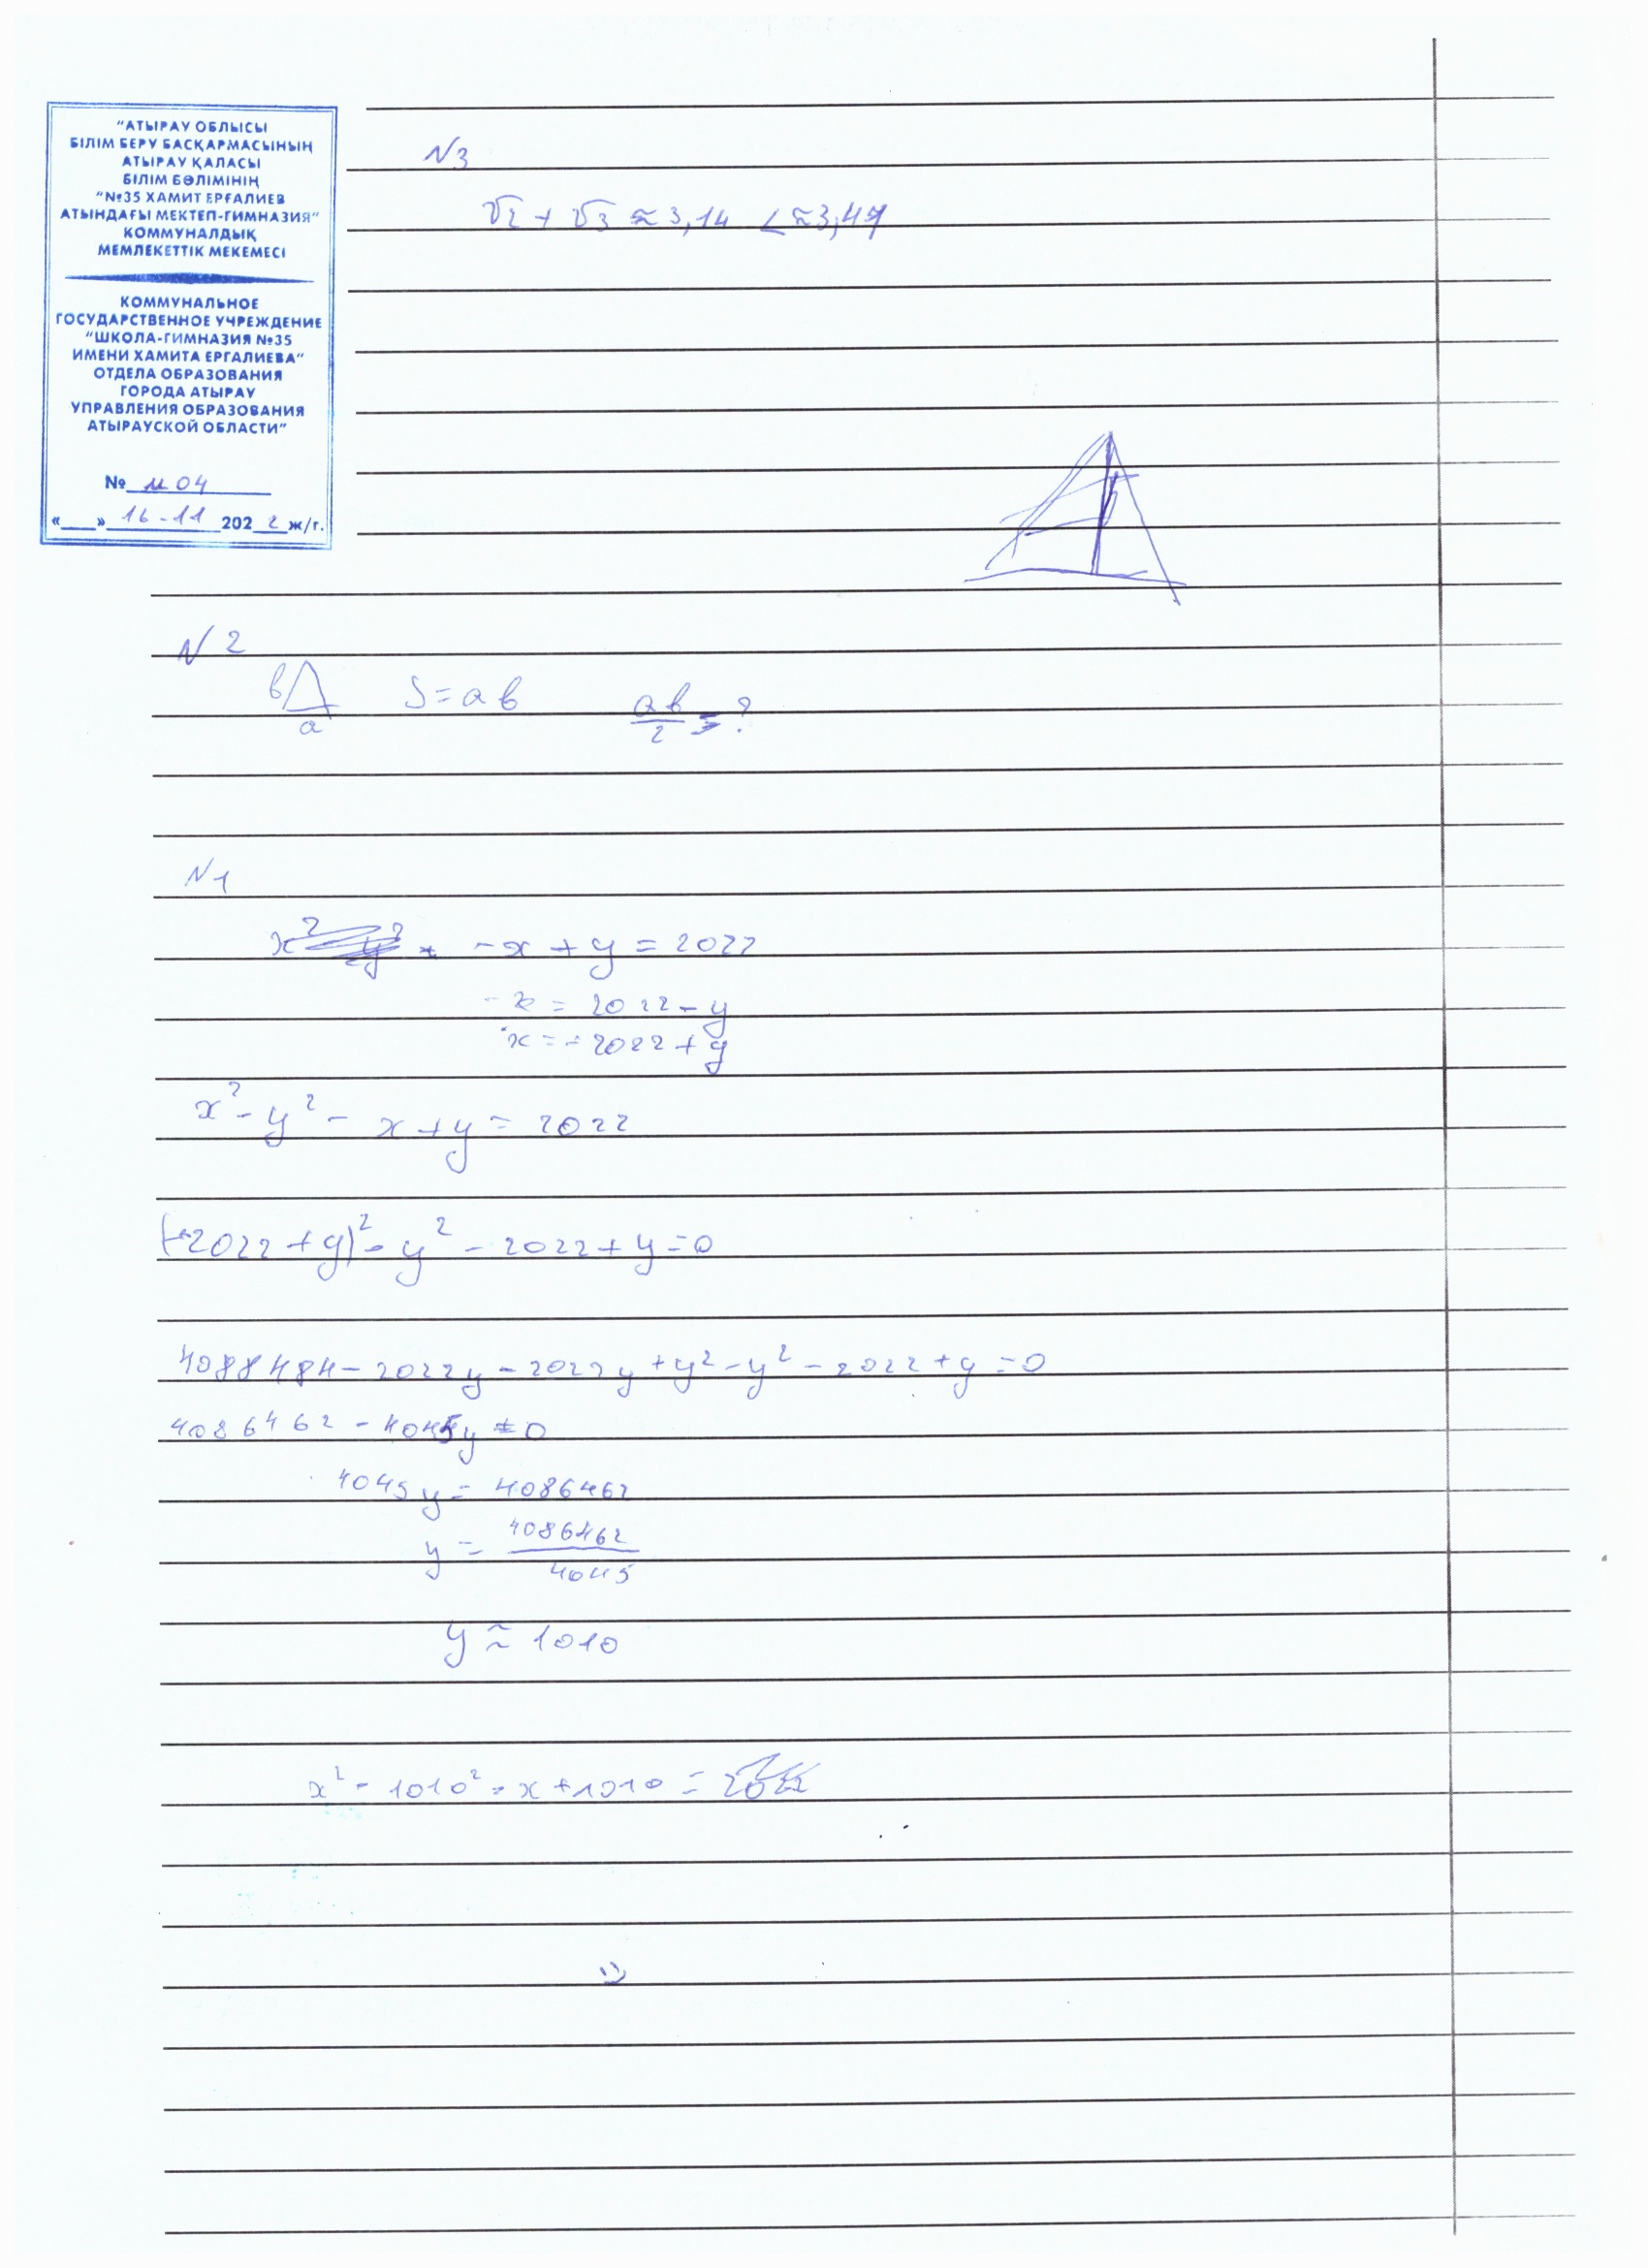 "АТЫРАУ ОБЛЫСЫ
БІЛІМ БЕРУ БАСҚАРМАСЫНЫҢ
АТЫРАУ ҚАЛАСЫ
БІЛІМ БӨЛІМІНІҢ
"№35 ХАМИТ ЕРҒАЛИЕВ
АТЫНДАҒЫ МЕКТЕП-ГИМНАЗИЯ"
КОММУНАЛДЫҚ
МЕМЛЕКЕТТІК МЕКЕМЕСІ
КОММУНАЛЬНОЕ
ГОСУДАРСТВЕННОЕ УЧРЕЖДЕНИЕ
"ШКОЛА-ГИМНАЗИЯ №35
ИМЕНИ ХАМИТА ЕРГАЛИЕВА"
ОТДЕЛА ОБРАЗОВАНИЯ
ГОРОДА АТЫРАУ
УПРАВЛЕНИЯ ОБРАЗОВАНИЯ
АТЫРАУСКОЙ ОБЛАСТИ"
№ м 04
«___» 16-11 2022 ж/г.
N3
√2 + √3 ≈ 3,14 < ≈3,47
N2
в a S = a в aв/2 = ?
N1
- x + y = 2022
- x = 2022 - y
x = - 2022 + y
x² - y² - x + y = 2022
(-2022 + y)² - y² - 2022 + y = 0
4088484 - 2022y - 2022y + y² - y² - 2022 + y = 0
4086462 - 4045y = 0
4045y = 4086462
y = 4086462/4045
y ≈ 1010
x² - 1010² - x + 1010 = 2022